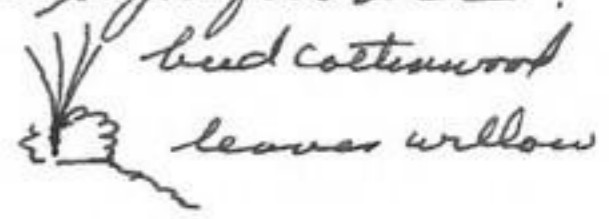 bud cottonwood
leaves willow